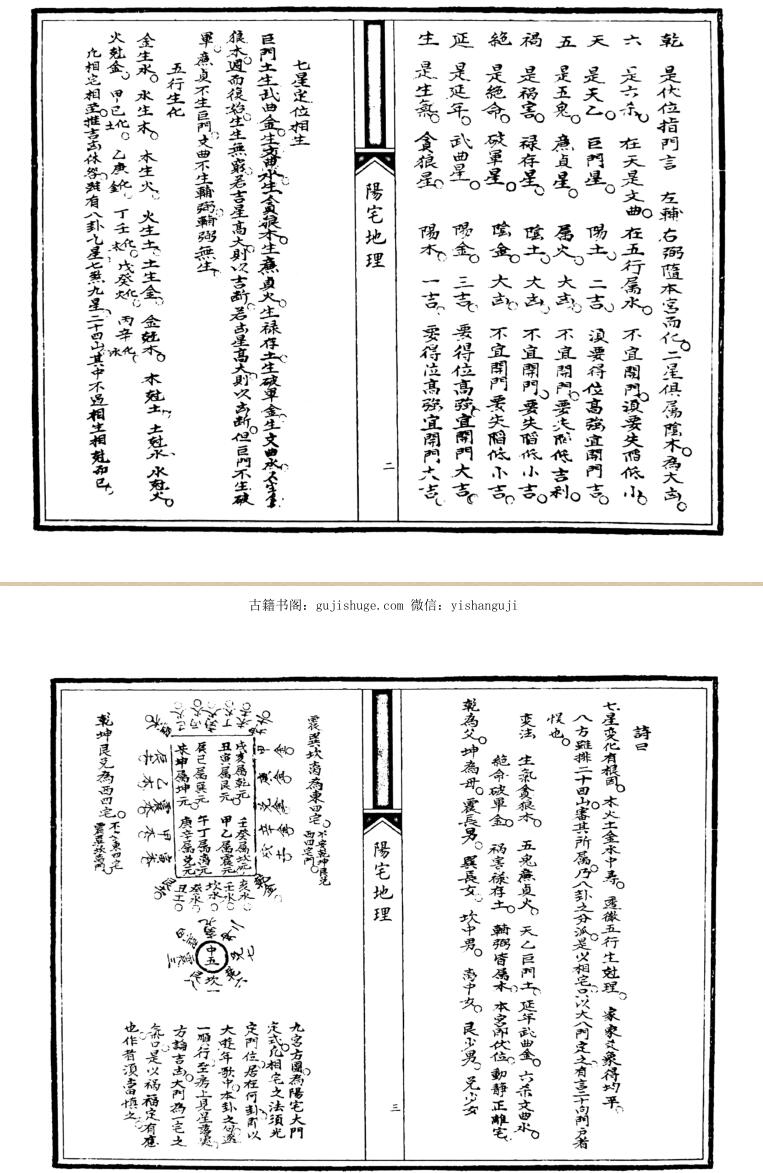 乾　是伏位指門言　左輔右弼隨本宮而化。二星俱属陰木為大凶。
六　是六杀。在天是文曲。在五行属水。不宜開門。須要失陷低小。
天　是天乙。巨門星。陽土。二吉。須要得位高強宜開門吉。
五　是五鬼。廉貞星。属火。大凶。不宜開門。要失陷低吉利
禍　是禍害。禄存星。陰土。大凶。不宜開門。要失陷低小吉。
絶　是絶命。破軍星。陰金。大凶　不宜開門要失陷低小吉。
延　是延年。武曲星。陽金。三吉。要得位高強宜開門大吉。
生　是生氣。貪狼星。陽木。一吉。要得位高強宜開門大吉。
陽宅地理
二
七星定位相生
巨門土生武曲金。生文曲水。生貪狼木生廉貞火。生禄存土生破軍金。生文曲水。
狼木週而復始。生生無窮若吉星高大則以吉断。若凶星高大則以凶断。但巨門不生破
軍。廉貞不生巨門。文曲不生輔弼輔弼無生。
五行生化
金生水。水生木。木生火。火生土。土生金。金尅木。木尅土。土尅水。水尅火。
火尅金。甲己化土。乙庚化金。丁壬化木。戊癸化火。丙辛化水。
凡相宅相塋推吉凶休咎雖有八卦九星七煞九星。二十四山。其中不過相生相尅而已。
古籍书阁：gujishuge.com 微信：yishanguji
詩曰
七星变化有根因。木火土金水中尋。透徹五行生尅理。家家爻象得均平。
八方雖排二十四山。審其所属。乃八卦之分派。是以相宅只以大八門定之。有言二十向門戸者
悮也。
变法　生氣貪狼木。五鬼廉貞火。天乙巨門土。延年武曲金。六杀文曲水。
絶命破軍金。禍害禄存土。輔弼皆属木。本宮即伏位。動静正離宅。
乾為父。坤為母。震長男。巽長女。坎中男。离中女。艮少男。兑少女
陽宅地理
三
震巽坎离為東四宅。不安乾坤艮兑西四宅門。
戌亥属乾元。壬癸属坎元。
丑寅属艮元。甲乙属震元。
辰巳属巽元。午丁属离元。
未坤属坤元。庚辛属兑元。
中五
乾坤艮兑為西四宅。不安東四宅震巽坎离門。
九宮方圖為陽宅大門
定式。凡相宅之法須光
定門位。居在何卦再以
大遊年歌中本卦之句逐
一順行至房上見星落處
方論吉凶。大門為一宅之
氣口。是以禍福定有應
也作者須當慎之。